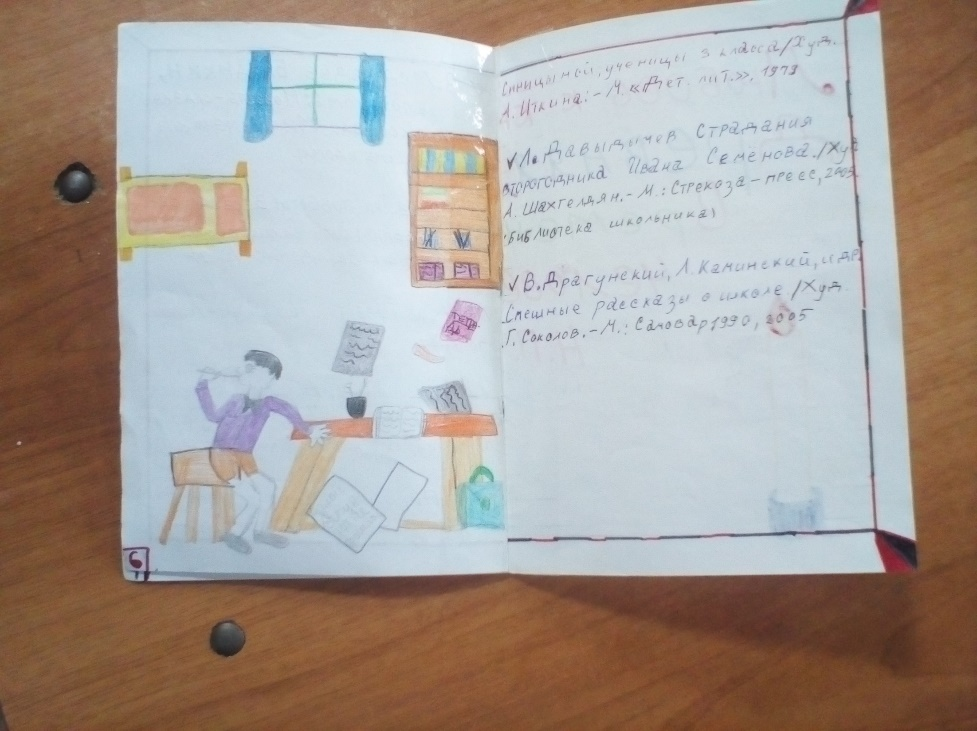 Синицыной, ученицы 3 класса/Худ.
А. Иткина. - М. «Дет. лит.», 1979
✓Л. Давыдычев Страдания
второгодника Ивана Семенова./Худ
А. Шахгелдян. - М.: Стрекоза-пресс, 2005
(Библиотека школьника)
✓В. Драгунский, Л. Каминский, и др.
Смешные рассказы о школе./Худ.
Г. Соколов. - М.: Самовар 1990, 2005
6